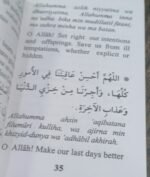 Allahumma aslih niyyatina wa
dhurriyatina. Allahumma inna
O Allâh! Set right our intentions and
offsprings. Save us from ill
temptations, whether explicit or
hidden.
اللَّهُمَّ أَحْسِنْ عَاقِبَتَنَا فِي الْأُمُورِ
كُلِّهَا، وَأَجِرْنَا مِنْ خِزْيِ الدُّنْيَا
وَعَذَابِ الْآخِرَةِ.
Allahumma ahsin 'aqibatana
filumûri kulliha, wa ajirna min
khizyid-dunya wa 'adhâbil akhirah.
O Allâh! Make our last days better
35